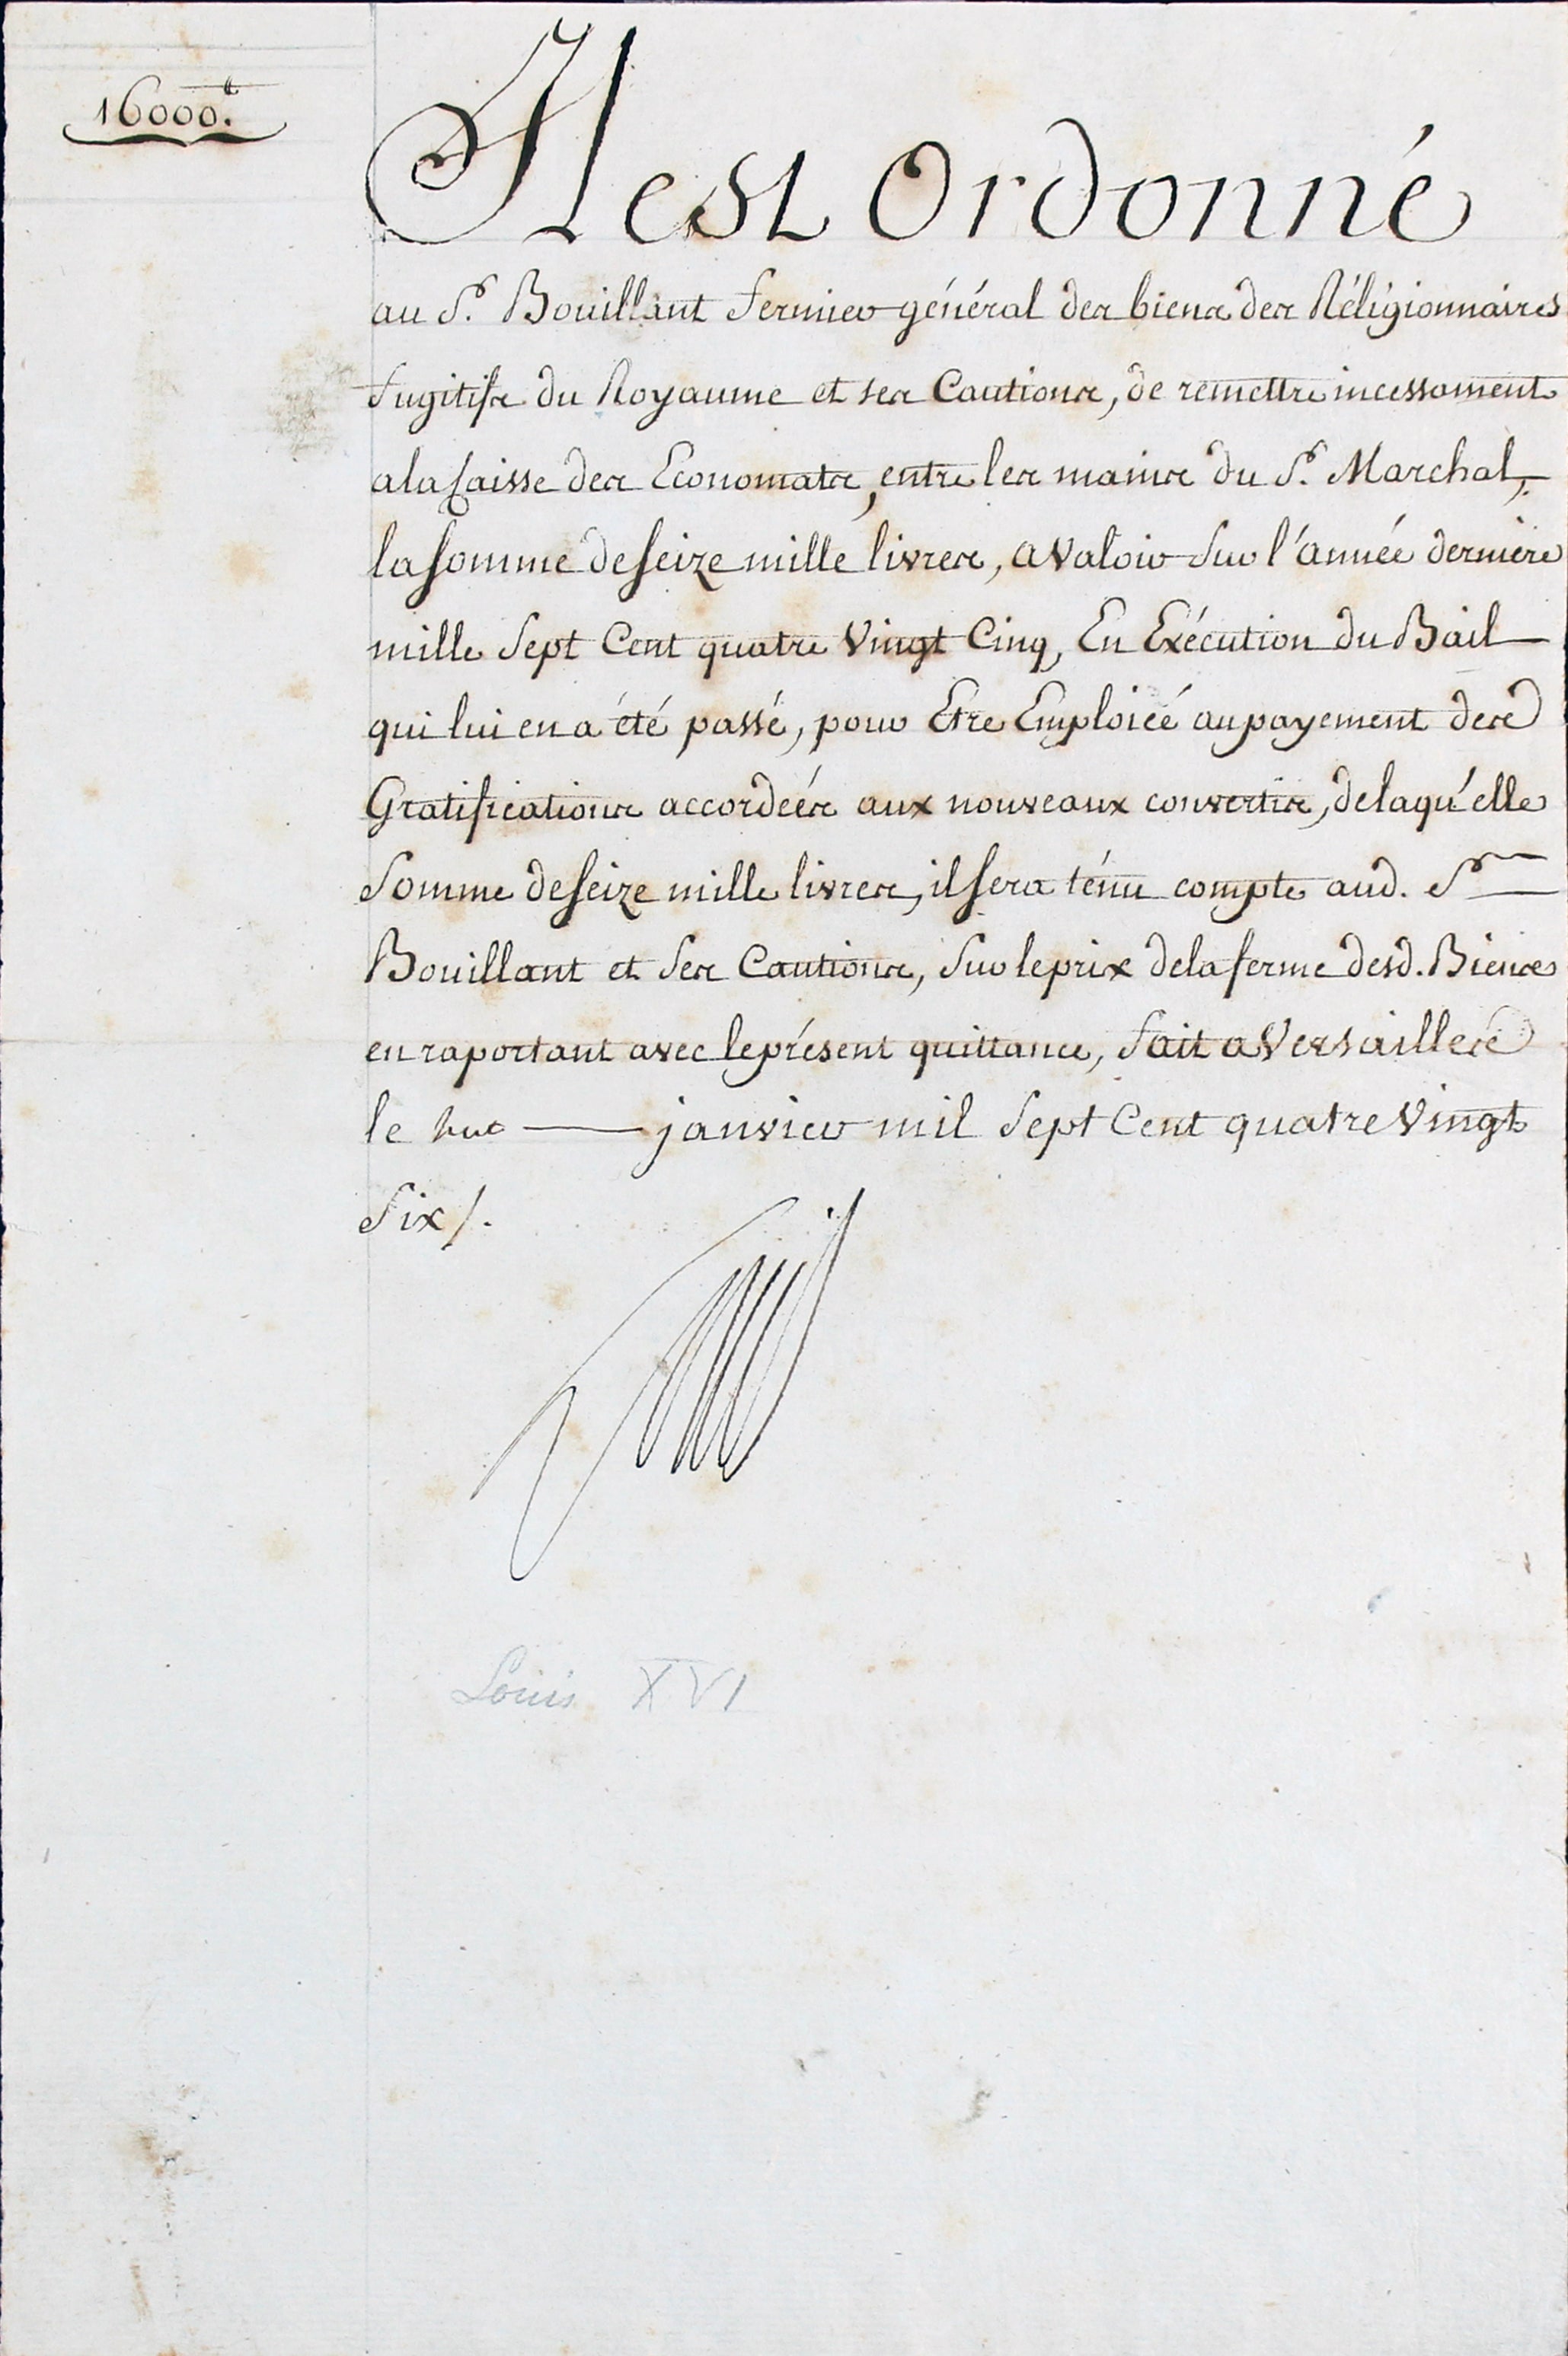 16000.tt
Il est Ordonné
au Sr. Bouillant fermier général des biens des Réligionnaires
fugitifs du Royaume et ses Cautions, de remettre incessament
a la Caisse des Economats, entre les mains du Sr. Marchal,
la somme de seize mille livres, a Valoir sur l'année derniere
mille sept Cent quatre Vingt Cinq, En Exécution du Bail
qui lui en a été passé, pour Etre Emploiée au payement des
Gratifications accordeés aux nouveaux convertis, de laqu'elle
Somme de seize mille livres, il sera ténu compte aud. Sr
Bouillant et ses Cautions, sur le prix de la ferme desd. Biens
en raportant avec le présent quittance, fait a Versailles
le huit janvier mil sept Cent quatre Vingt
Six /.
Louis XVI